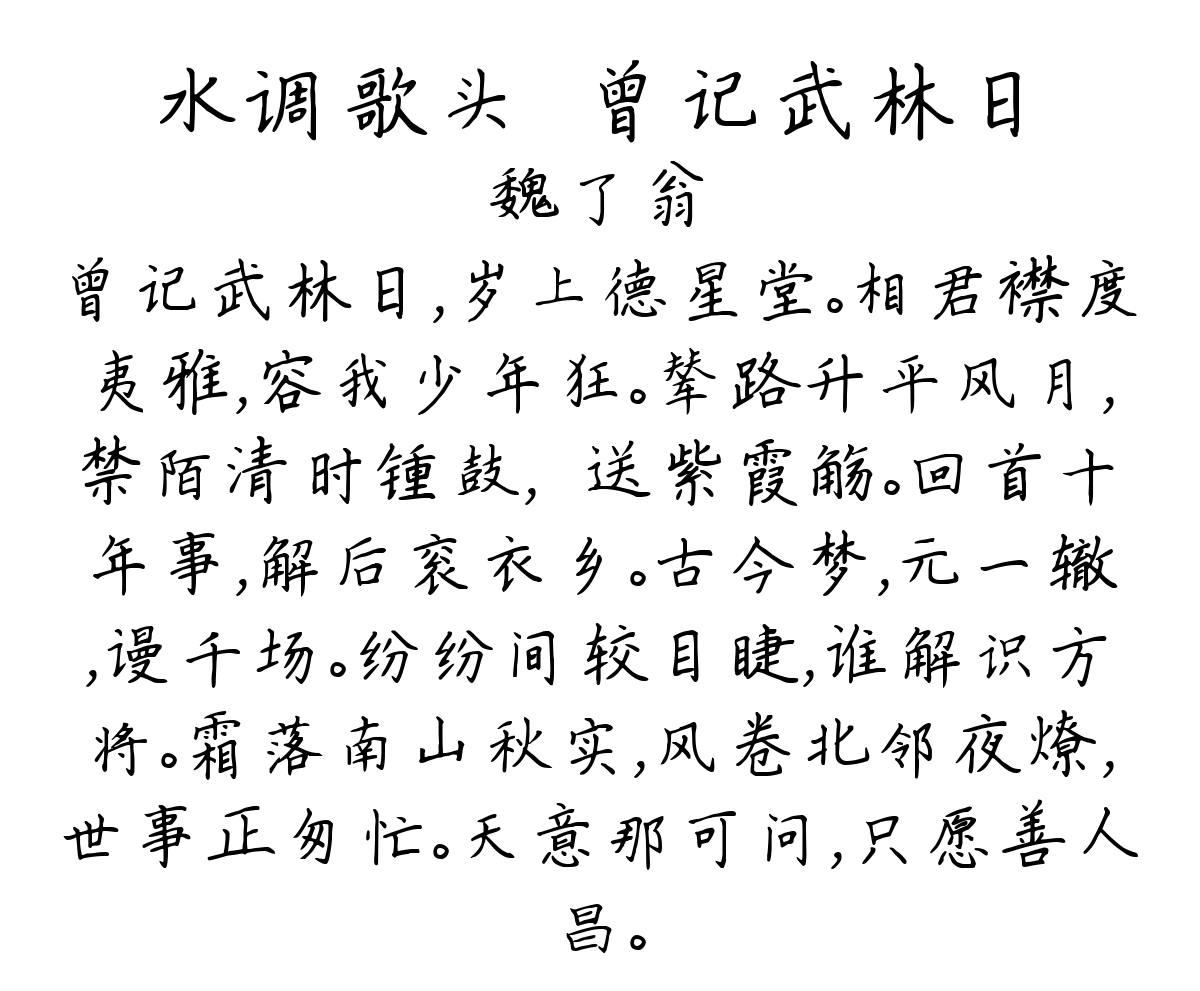 水调歌头 曾记武林日
魏了翁
曾记武林日,岁上德星堂。相君襟度
夷雅,容我少年狂。辇路升平风月,
禁陌清时锺鼓, 送紫霞觞。回首十
年事,解后衮衣乡。古今梦,元一辙
,谩千场。纷纷间较目睫,谁解识方
将。霜落南山秋实,风卷北邻夜燎,
世事正匆忙。天意那可问,只愿善人
昌。